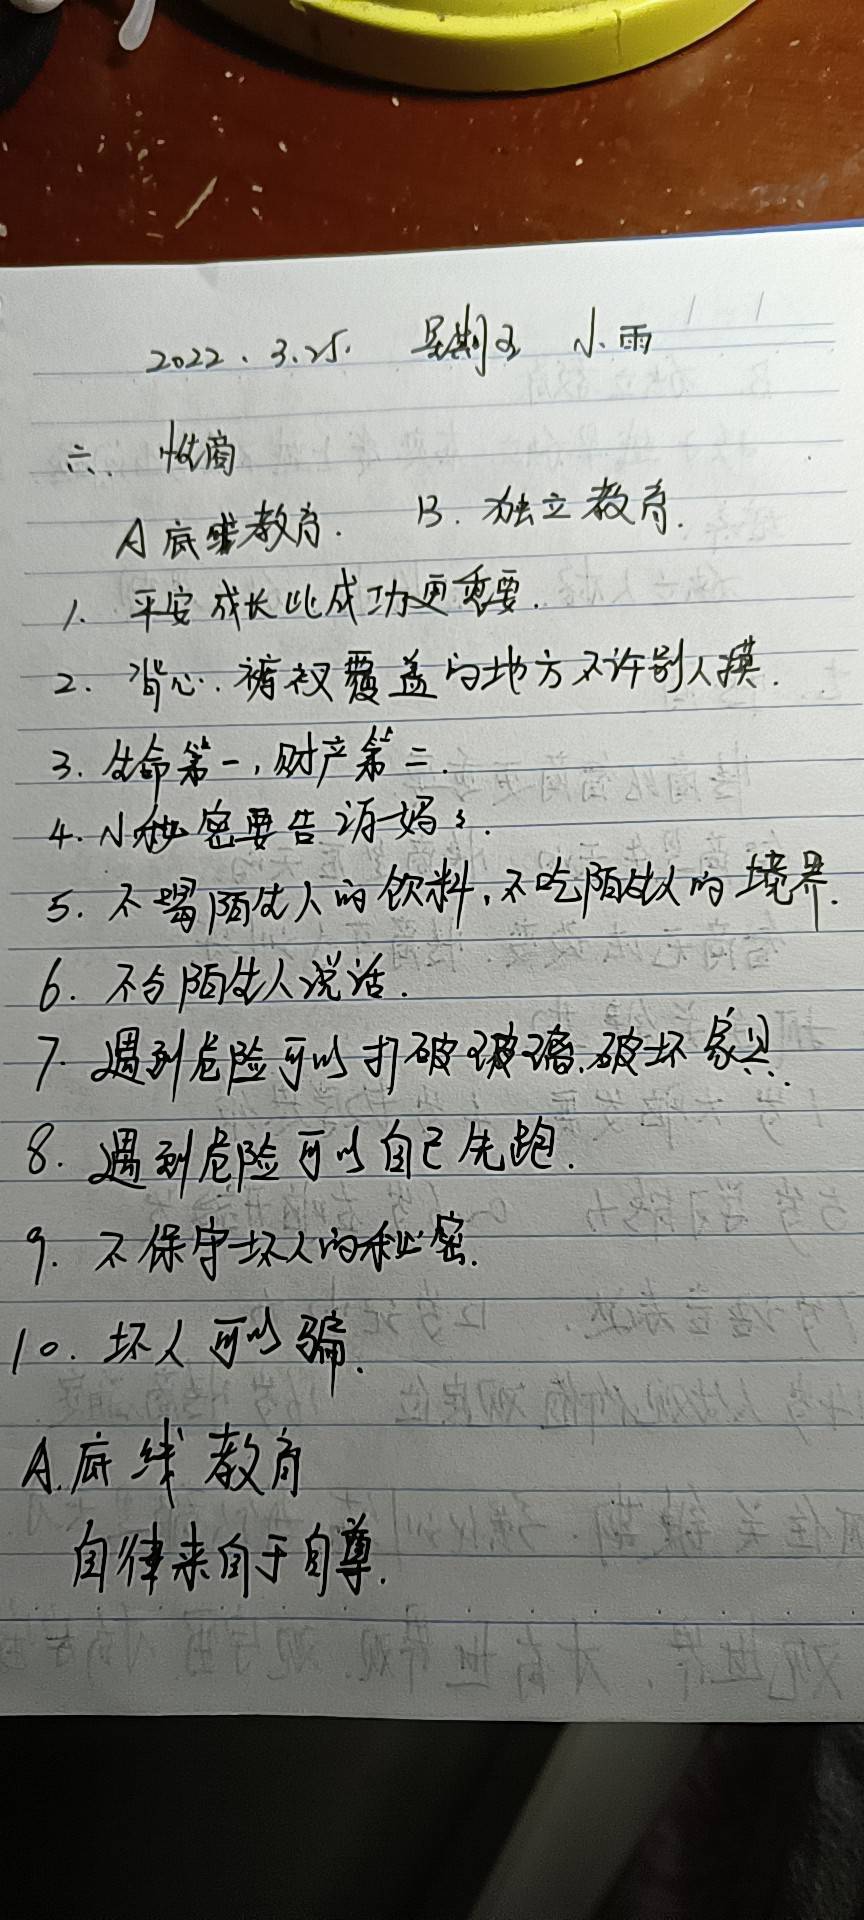 2022.3.25. 星期五 小雨
六、性商
A底线教育. B.独立教育.
1. 平安成长比成功更重要.
2. 背心.裤衩覆盖的地方不许别人摸.
3. 生命第一,财产第二.
4. 小秘密要告诉妈〻.
5. 不喝陌生人的饮料,不吃陌生人的境界.
6. 不与陌生人说话.
7. 遇到危险可以打破玻璃.破坏家具.
8. 遇到危险可以自己先跑.
9. 不保守坏人的秘密.
10. 坏人可以骗.
A.底线教育
自律来自于自尊.